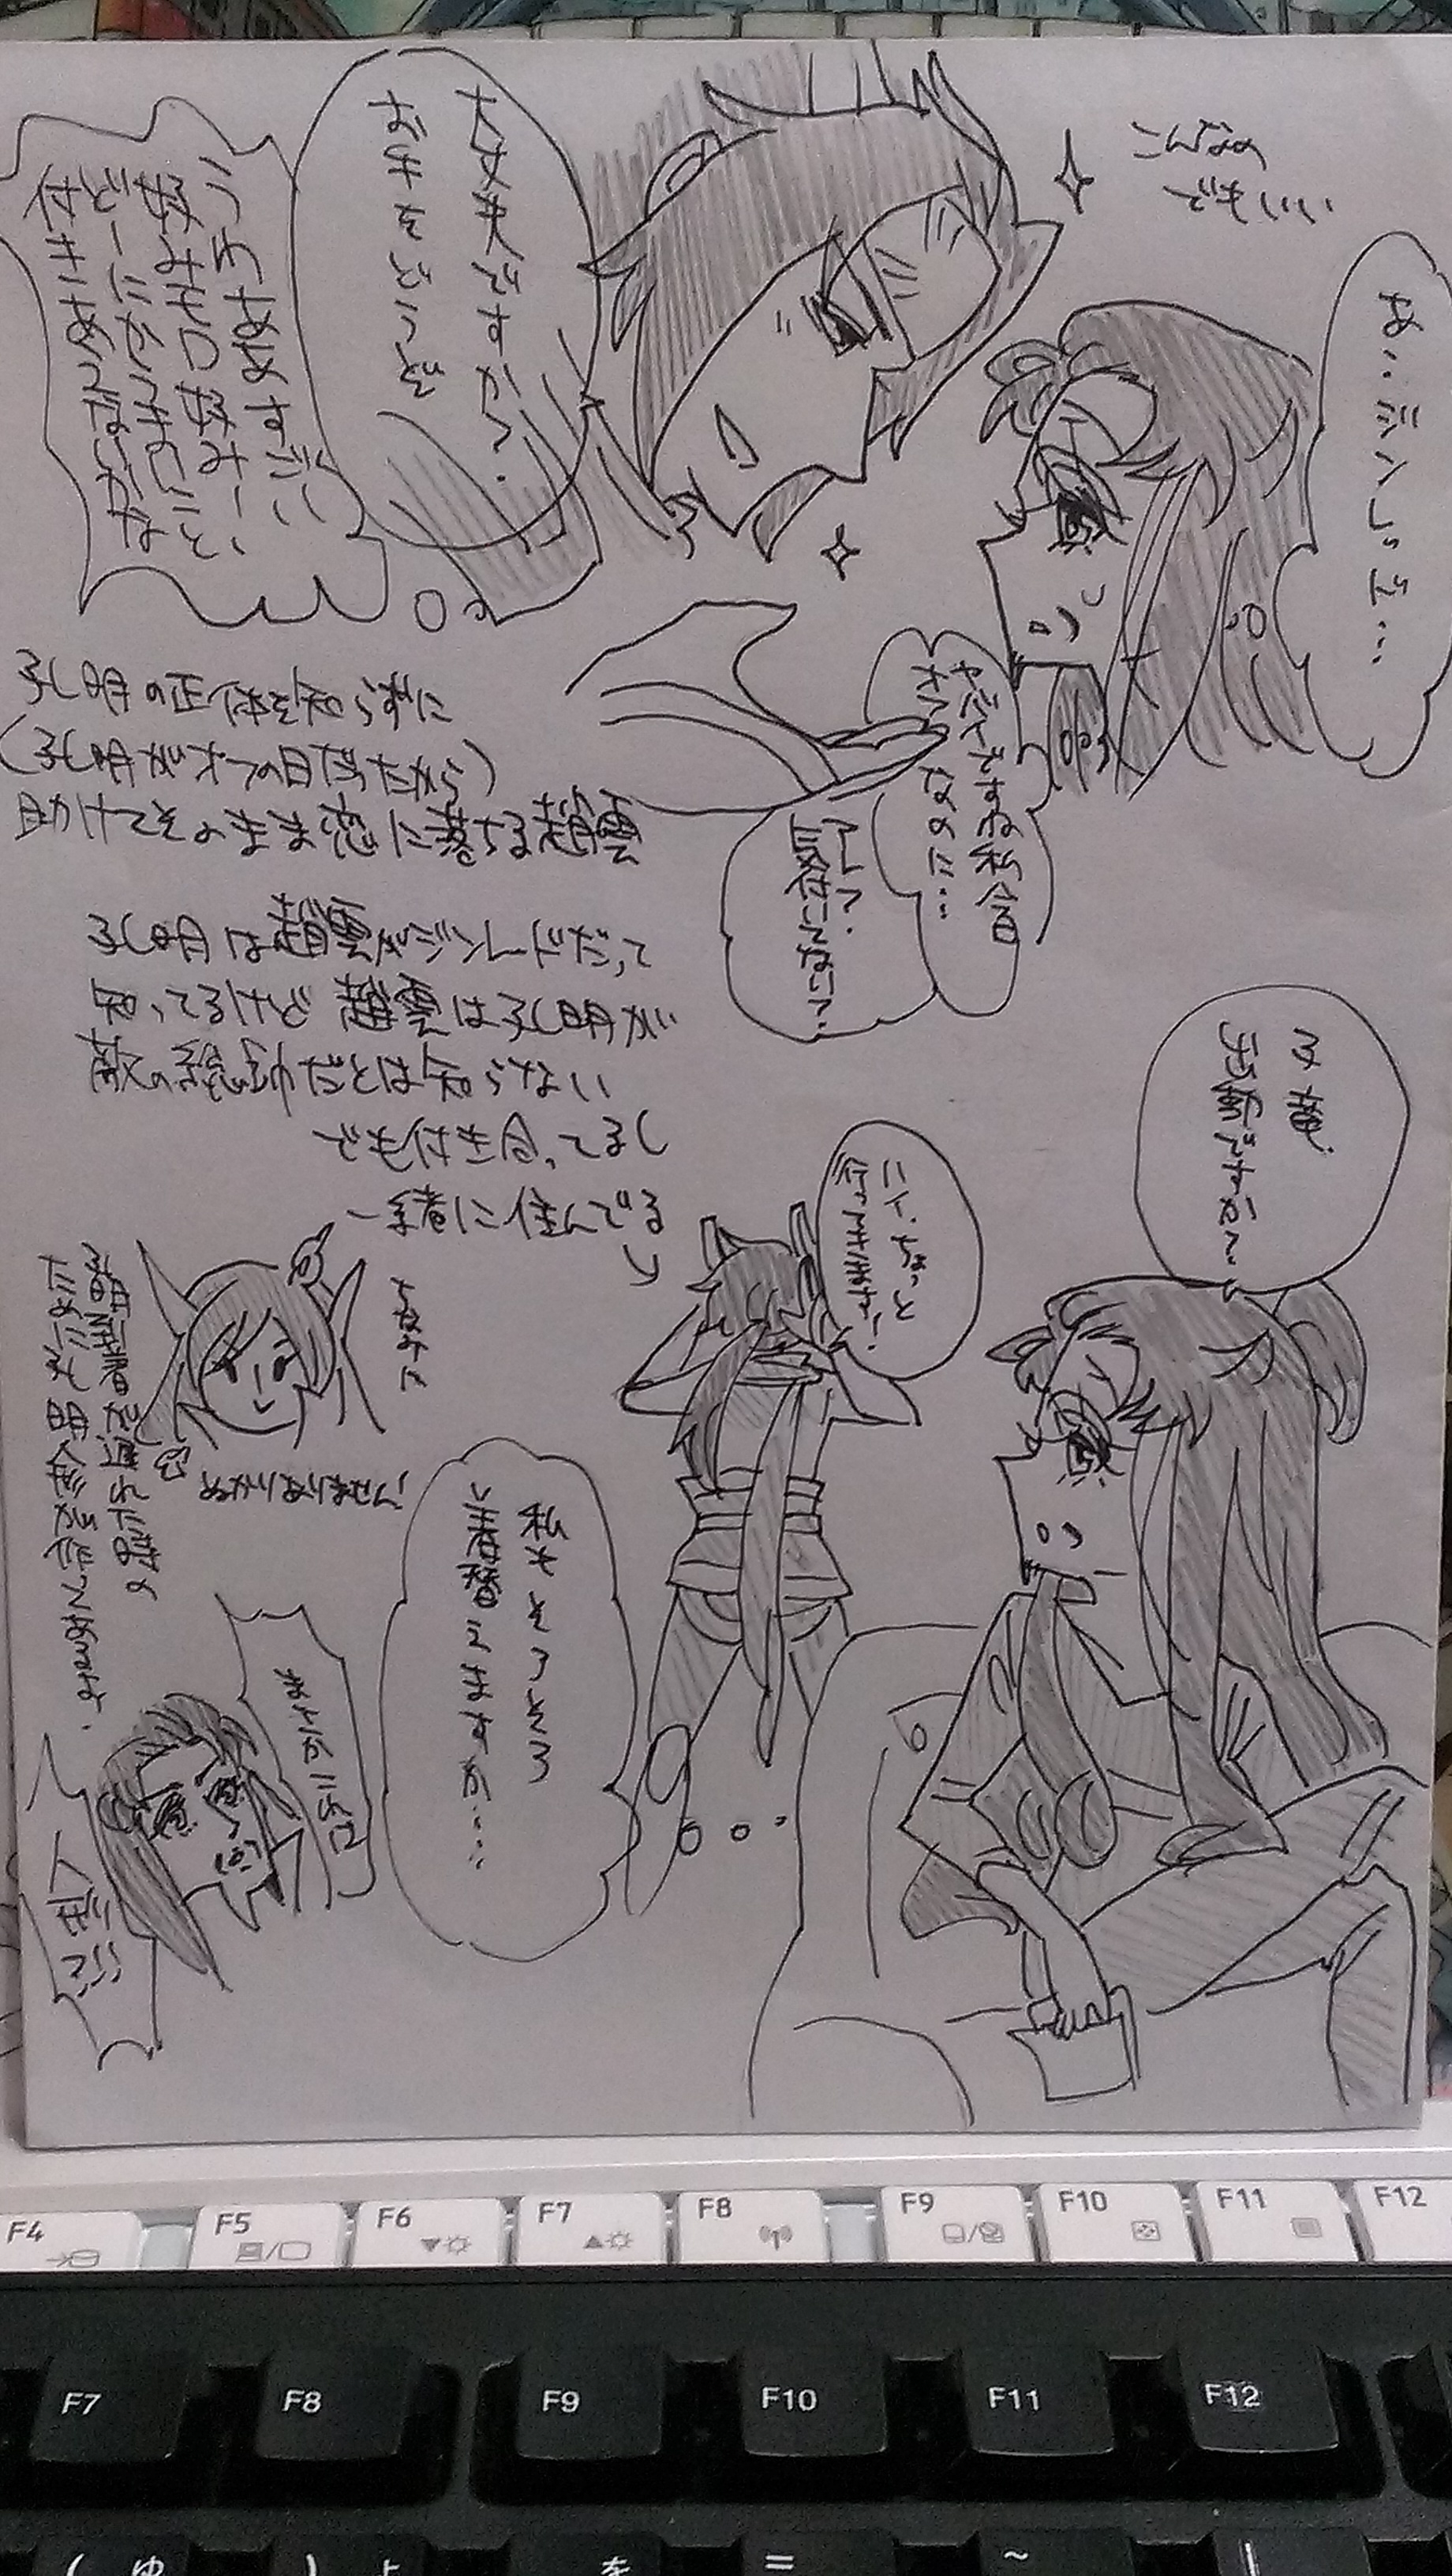 こんなの
でもいい
あ…ジンレッド…
大丈夫ですか?
お手をどうぞ
うわああすごい
好みモロ好みー
どーにかうまいこと
付きあえないかな
ヤバイですね私今日
オフなのに…
アレ?
気付いてない?
孔明の正体を知らずに
(孔明がオフの日だったから)
助けてそのまま恋に落ちる趙雲
孔明は趙雲がジンレッドだって
知ってるけど 趙雲は孔明が
敵の総帥だとは知らない
でも付き合ってるし
一緒に住んでる
子龍、
出動ですか〜
ハイ、ちょっと
行ってきます!
私もそろそろ
着替えますか…
ちなみに
ぬかりありません!
着替が遅れた時の
ために孔明人形が置いてあるよ。
人形っ!!
F4
F5
F6
F7
F8
F9
F10
F11
F12
F7
F8
F9
F10
F11
F12
( ゅ
) ょ
を
=
~
|